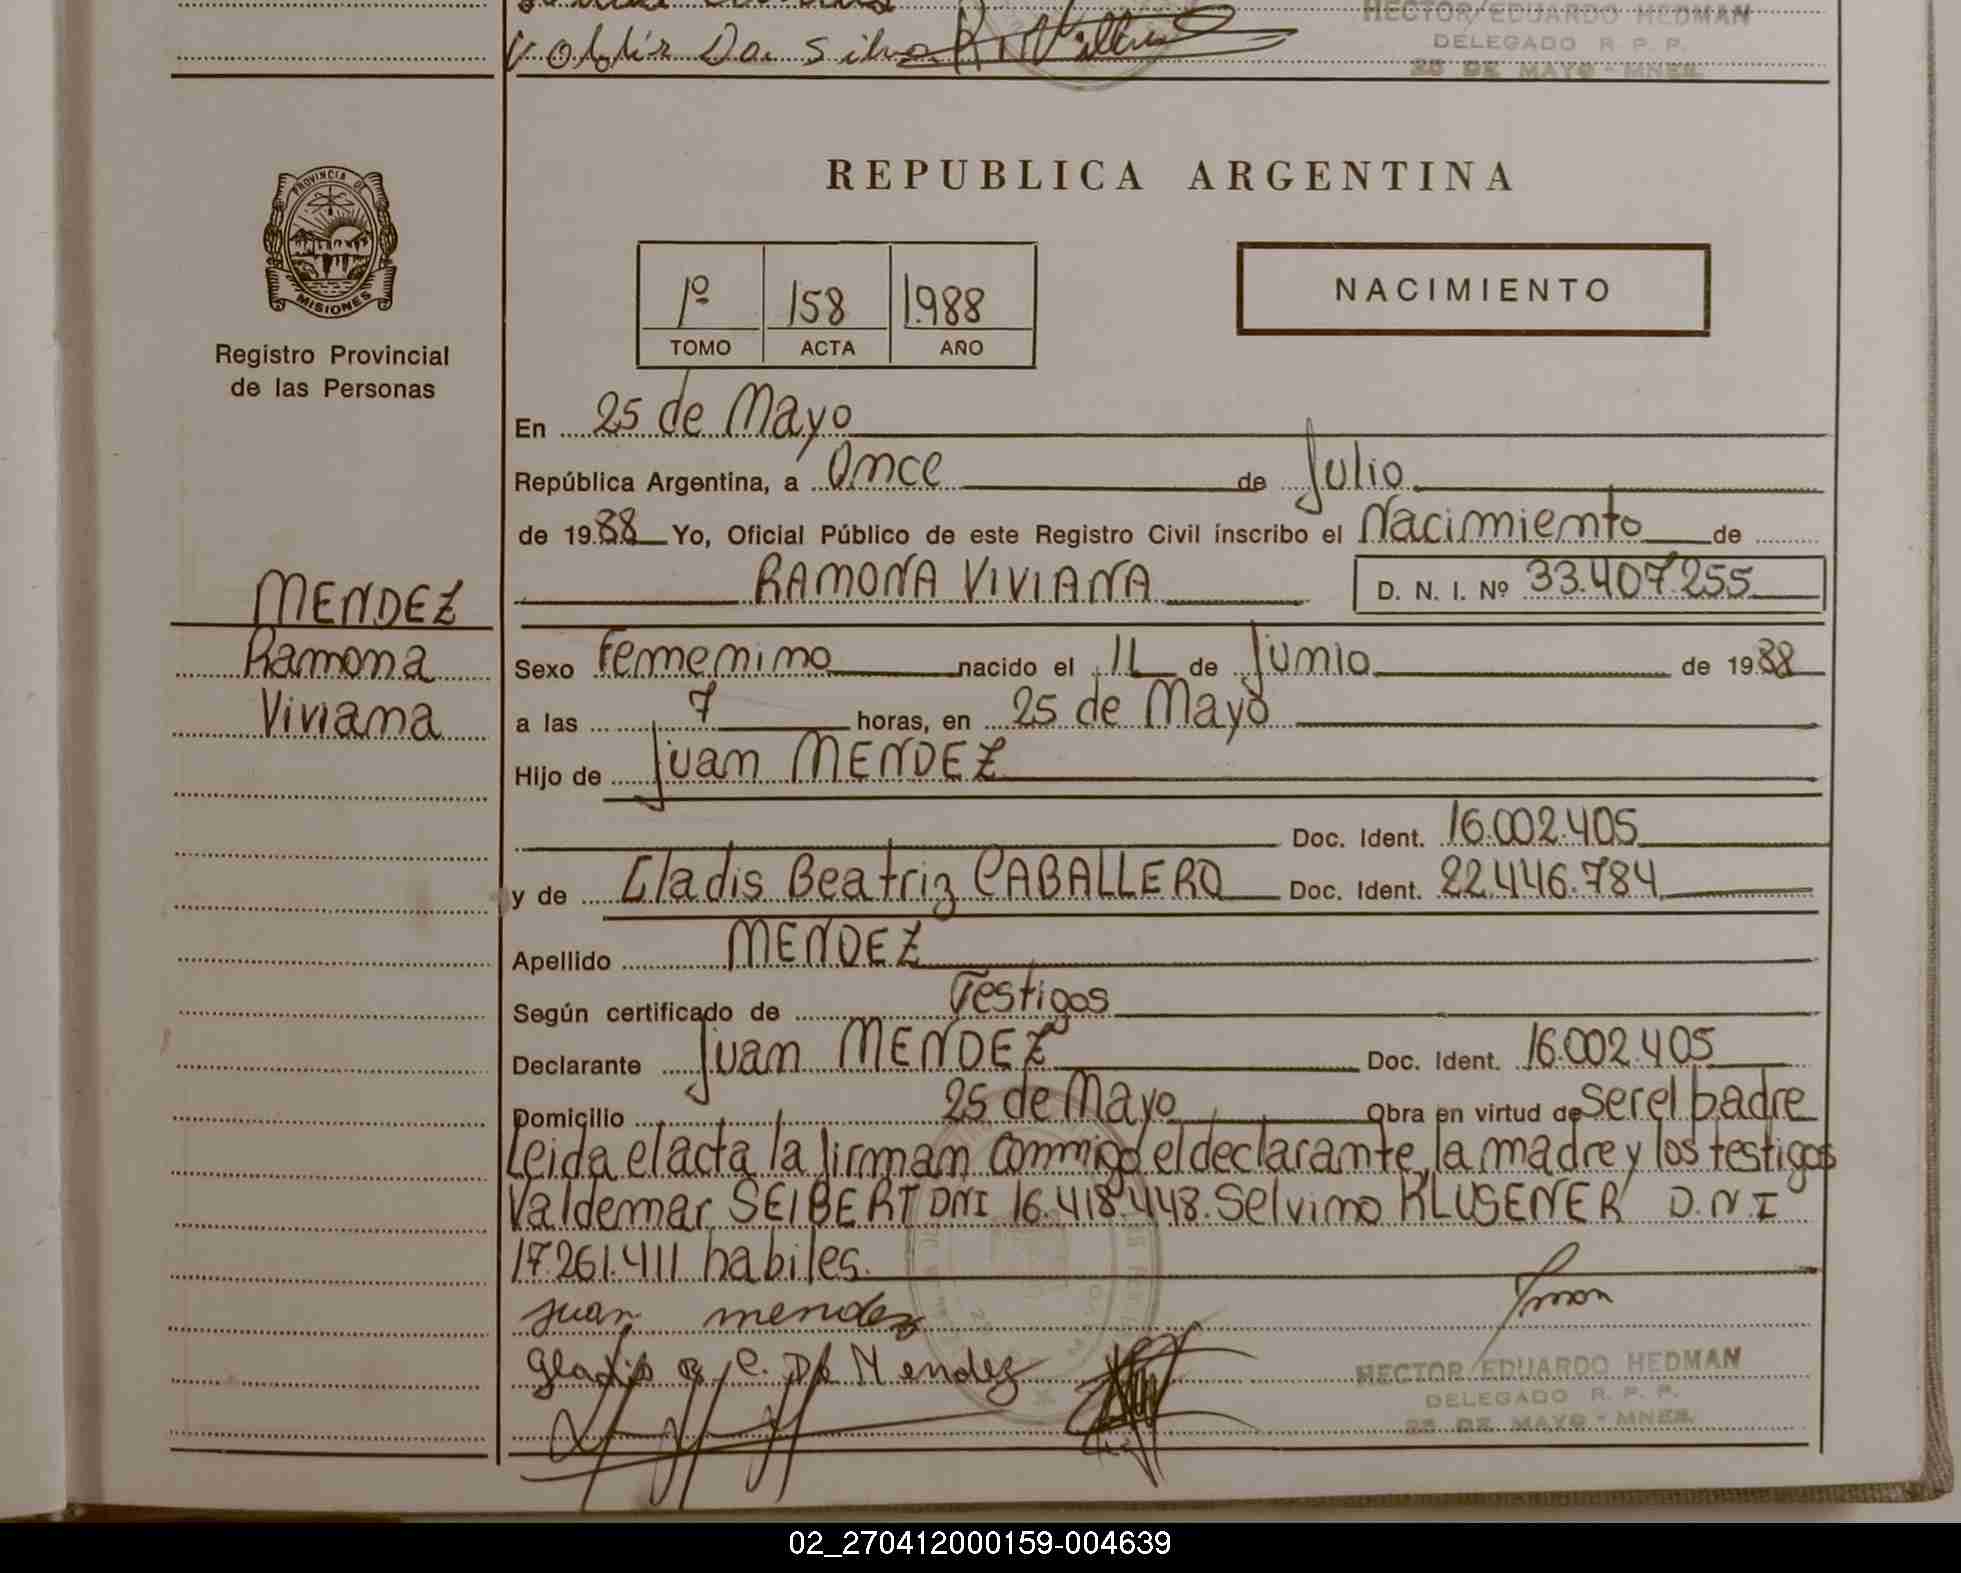 Valdir Da Silva
HECTOR EDUARDO HEDMAN
DELEGADO R. P. P.
25 DE MAYO - MNES.
PROVINCIA DE
MISIONES
Registro Provincial
de las Personas
REPUBLICA ARGENTINA
1º 158 1988
TOMO ACTA AÑO
NACIMIENTO
En 25 de Mayo
República Argentina, a Once de Julio
de 1988 Yo, Oficial Público de este Registro Civil inscribo el Nacimiento de
RAMONA VIVIANA D. N. I. Nº 33.407.255
MENDEZ
Ramona
Viviana
Sexo Femenino nacido el 11 de Junio de 1988
a las 7 horas, en 25 de Mayo
Hijo de Juan MENDEZ
Doc. Ident. 16.002.405
y de Gladis Beatriz CABALLERO Doc. Ident. 22.446.784
Apellido MENDEZ
Según certificado de Testigos
Declarante Juan MENDEZ Doc. Ident. 16.002.405
Domicilio 25 de Mayo Obra en virtud de ser el padre
Leida el acta la firman conmigo el declarante, la madre y los testigos
Valdemar SEIBERT DNI 16.418.448. Selvino KLUSENER D.N.I
17.261.411 habiles.
juan mendez
Gladis B. C. De Mendez
HECTOR EDUARDO HEDMAN
DELEGADO R. P. P.
25 DE MAYO - MNES.
02_270412000159-004639